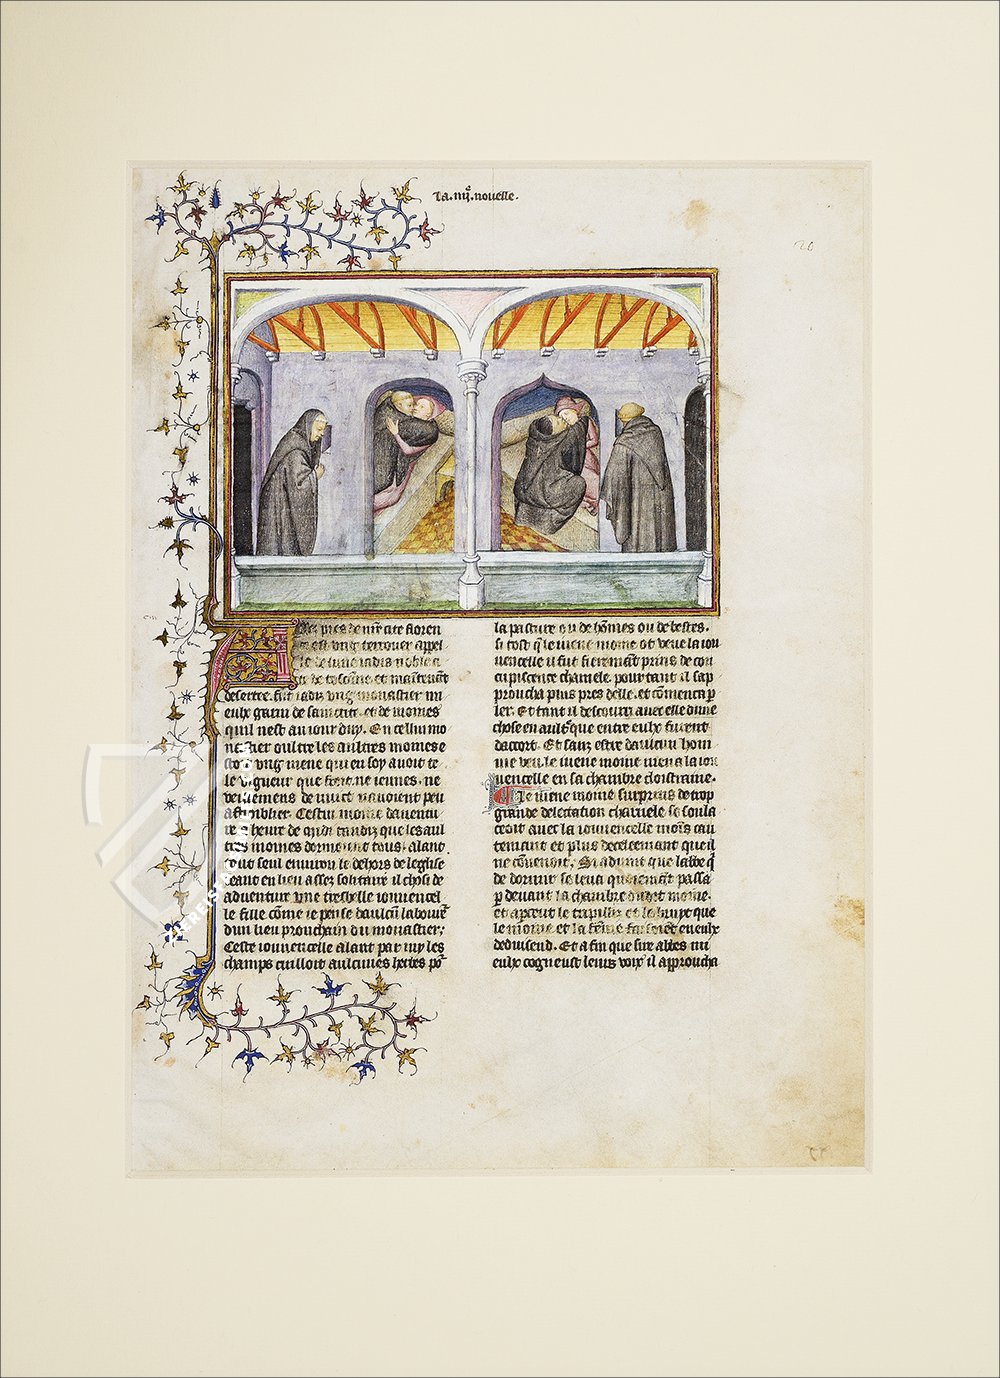 La .iiij.e nouelle.
20
Assez pres de nostre cite floren
ce est vng terrouer appel
le de lune iadis noble a
de toscane et maintenant
deserte. fut iadis vng monastier mi
eulx garni de sainctete et de moines
quil nest au iour duy. En cellui mo
nastier oultre les aultres moines e
stoit vng iuene qui en soy auoit te
le vigueur que froit. ne ieunes. ne
veillemens de nuict nauoient peu
admolier. Cestui moine dauentu
re a heure de midi tandiz que les aul
tres moines dormoient tous. alant
tout seul enuiron le dehors de leglise
seant en lieu assez solitaire il choisi de
aduenture vne tresbelle iouuencel
le fille come ie pense daulcun laboureur
dun lieu prouchain du monastier;
Ceste iouuencelle alant par my les
champs cuilloit aulcunes herbes por
la pasture ou de homes ou de bestes.
si tost que le iuene moine ot veue la iou
uencelle il fut fierement prins de con
cupiscence charnele. pour tant il sap
proucha plus pres delle. et comenca p
ler. Et tant il descouri auec elle dune
chose en aultre que entre eulx furent
daccort. Et sanz estre daulcun hom
me veu. le iuene moine mena la iou
uencelle en sa chambre cloistraine.
Cie iuene moine surpriuis de trop
grande delectation charnele se soula
ceoit auec la iouuencelle moins cau
tement et plus deceleement que il
ne couenoit. Si aduint que labbe q
de dormir se leua quoiement passa
p deuant la chambre dudit moine.
et apceut le trapillis et la hurpe que
le moine et la feme faisoient en eulx
deduisend. Et a fin que sire abbes mi
eulx cogneust leurs voix il approucha